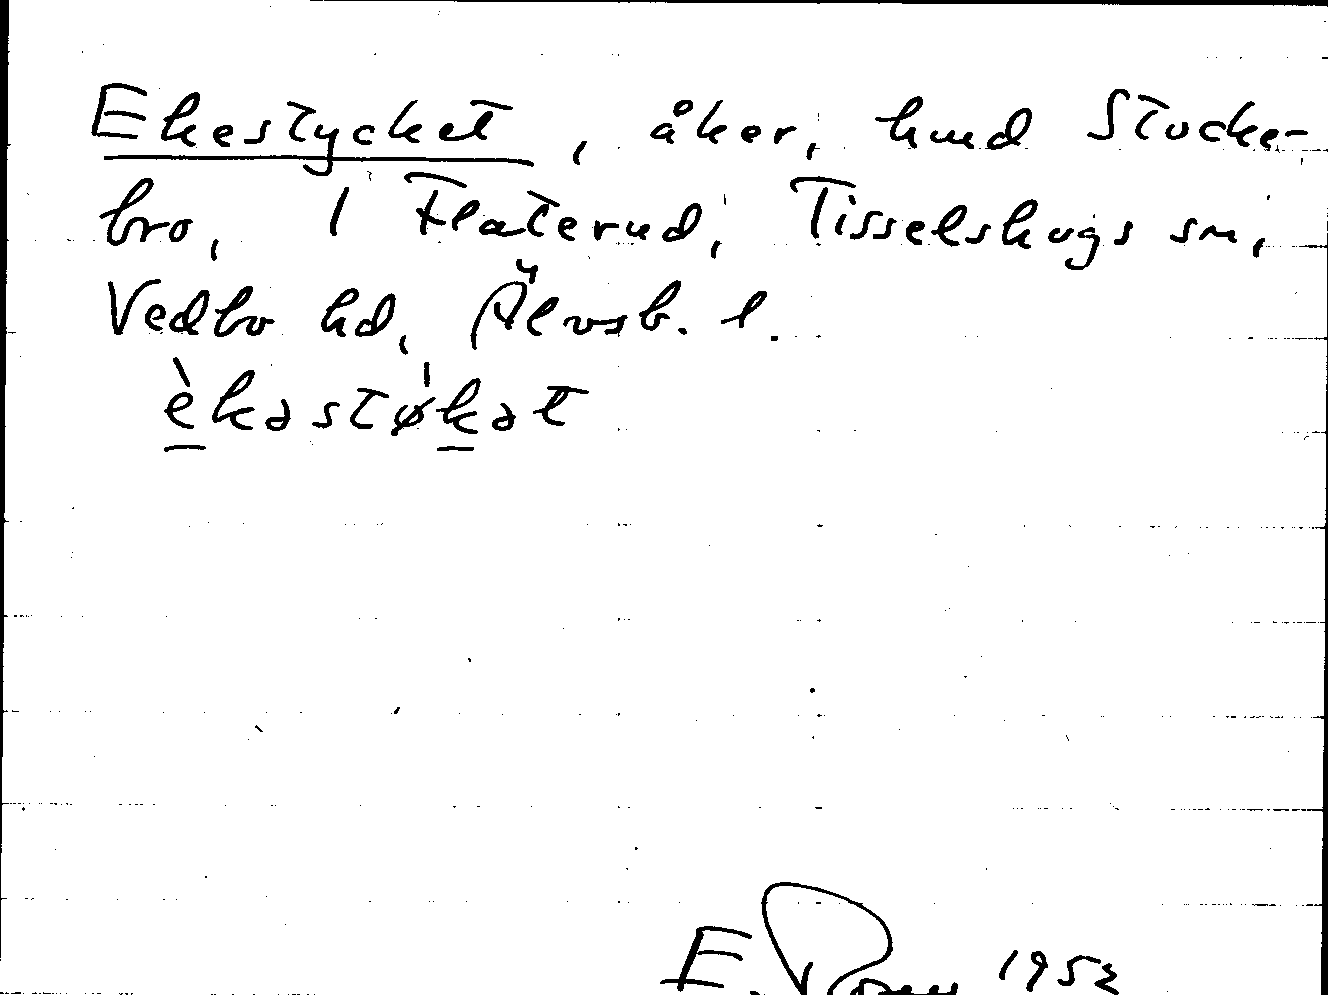 Ekestycket, åker, hmd Stocke-
bro, 1 Flaterud, Tisselskogs sn,
Vedbo hd, Älvsb. l.
èkəstø̍kət
E. 1952